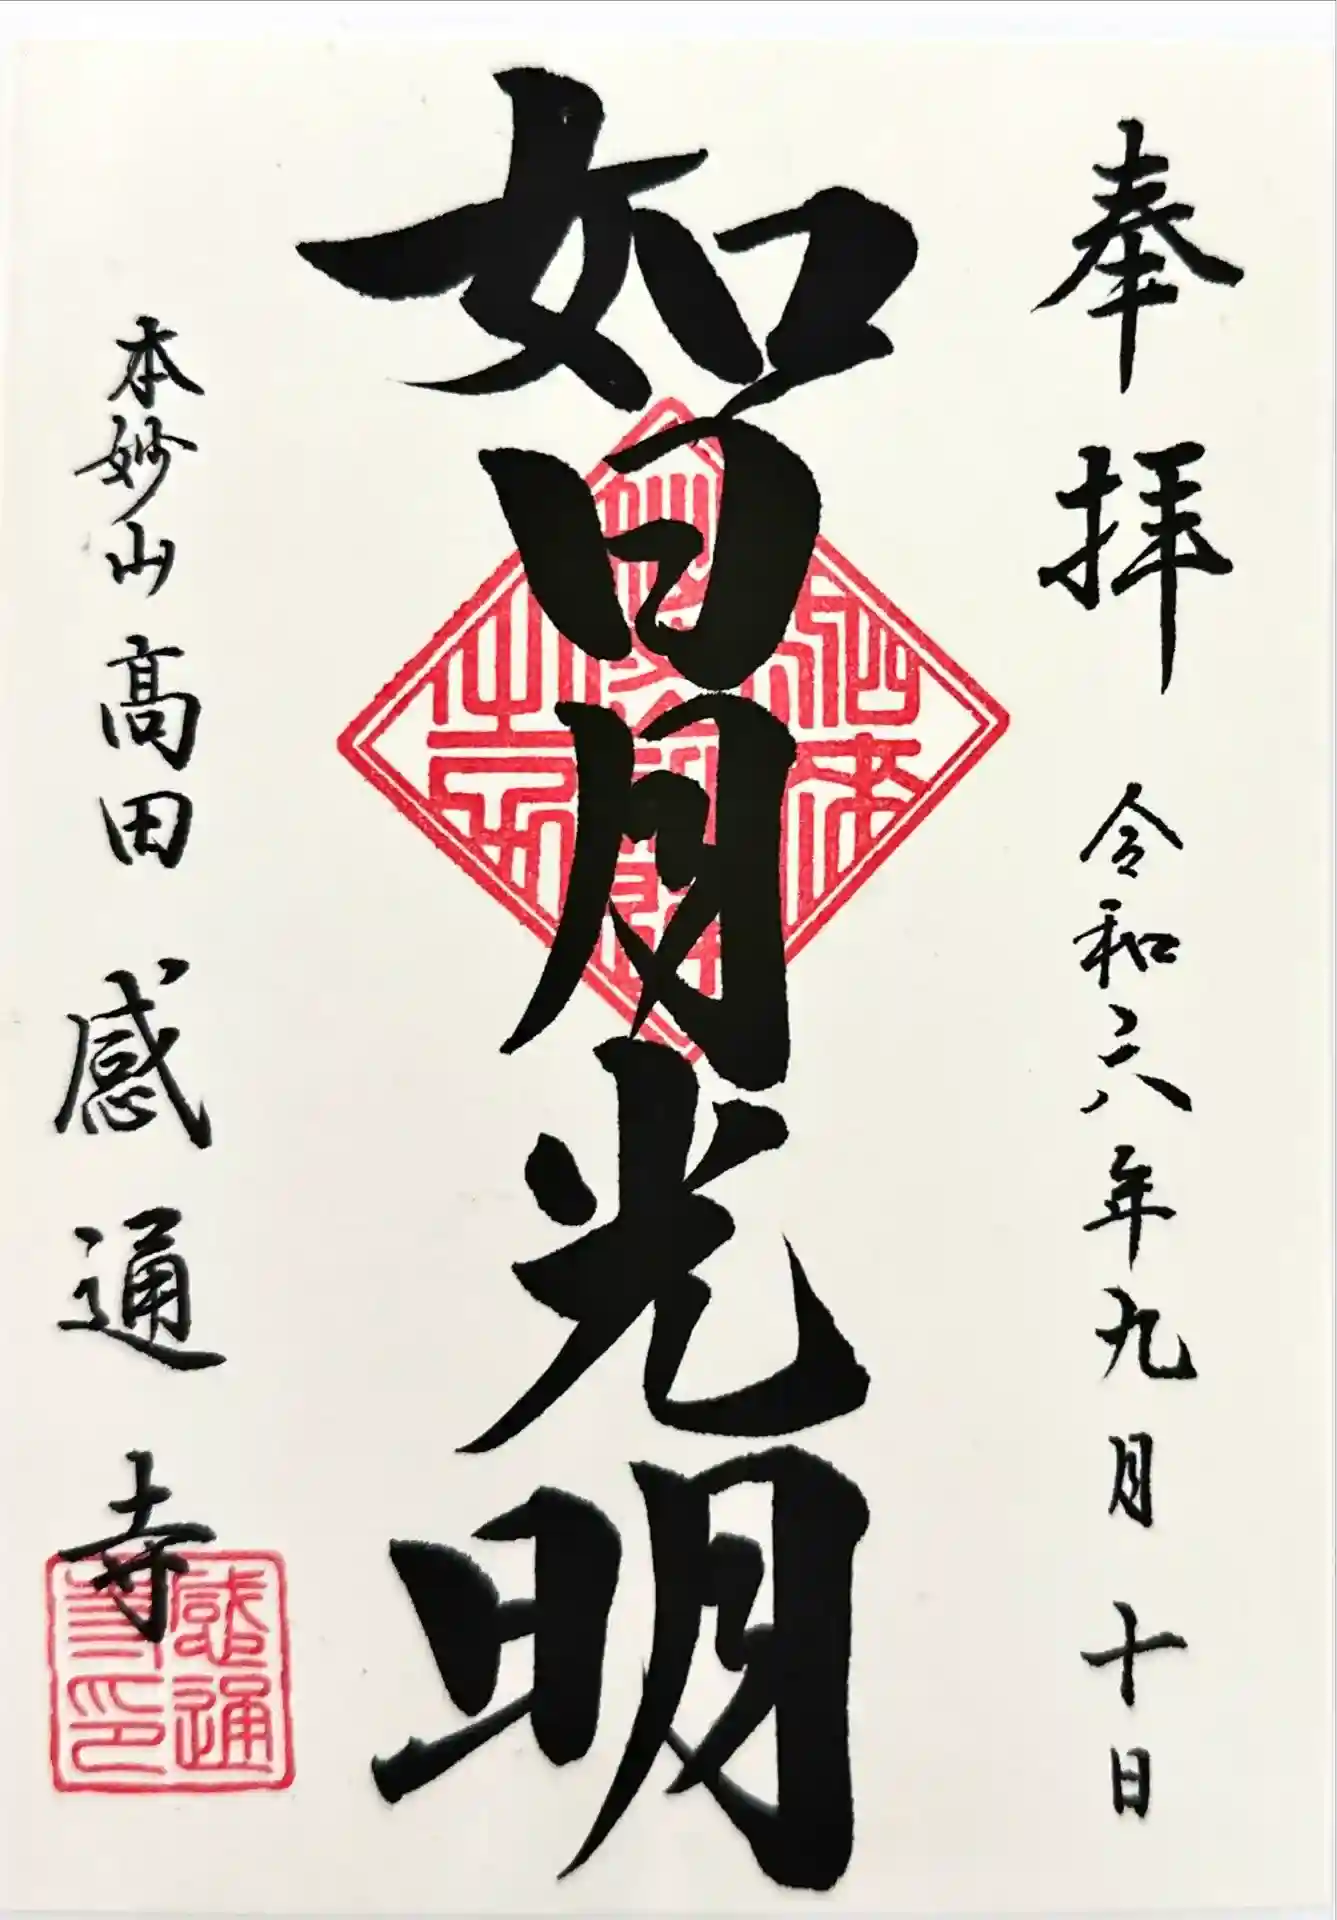 奉拝 令和六年九月十日
如日月光明
本妙山 髙田 感通寺
感通
寺印